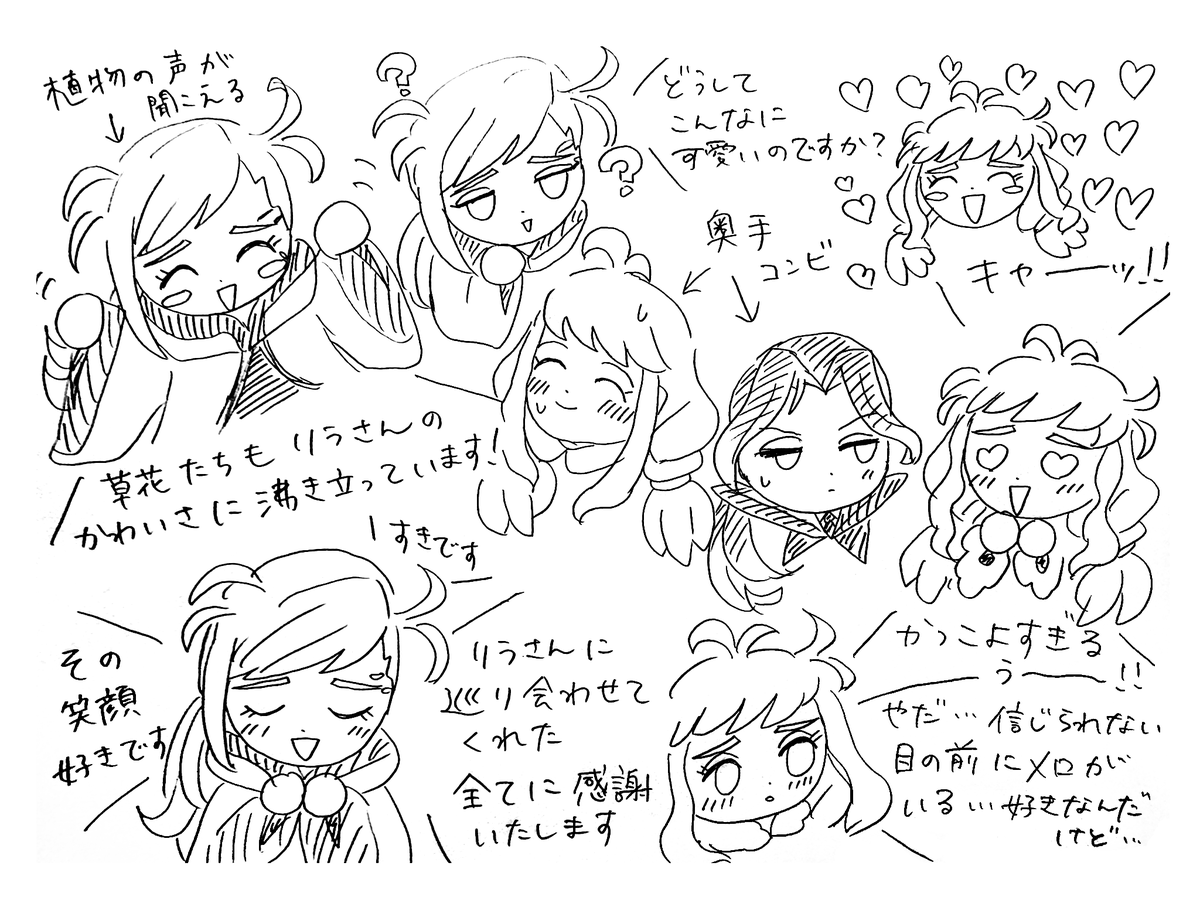 植物の声が
聞こえる
どうして
こんなに
可愛いのですか?
奥手
コンビ
キャーーッ!!
草花たちも りうさんの
かわいさに沸き立っています!
すきです
その
笑顔
好きです
りうさんに
巡り会わせて
くれた
全てに感謝
いたします
かっこよすぎる
うーー!!
やだ…信じられない
目の前にメロが
いる…好きなんだ
けど…